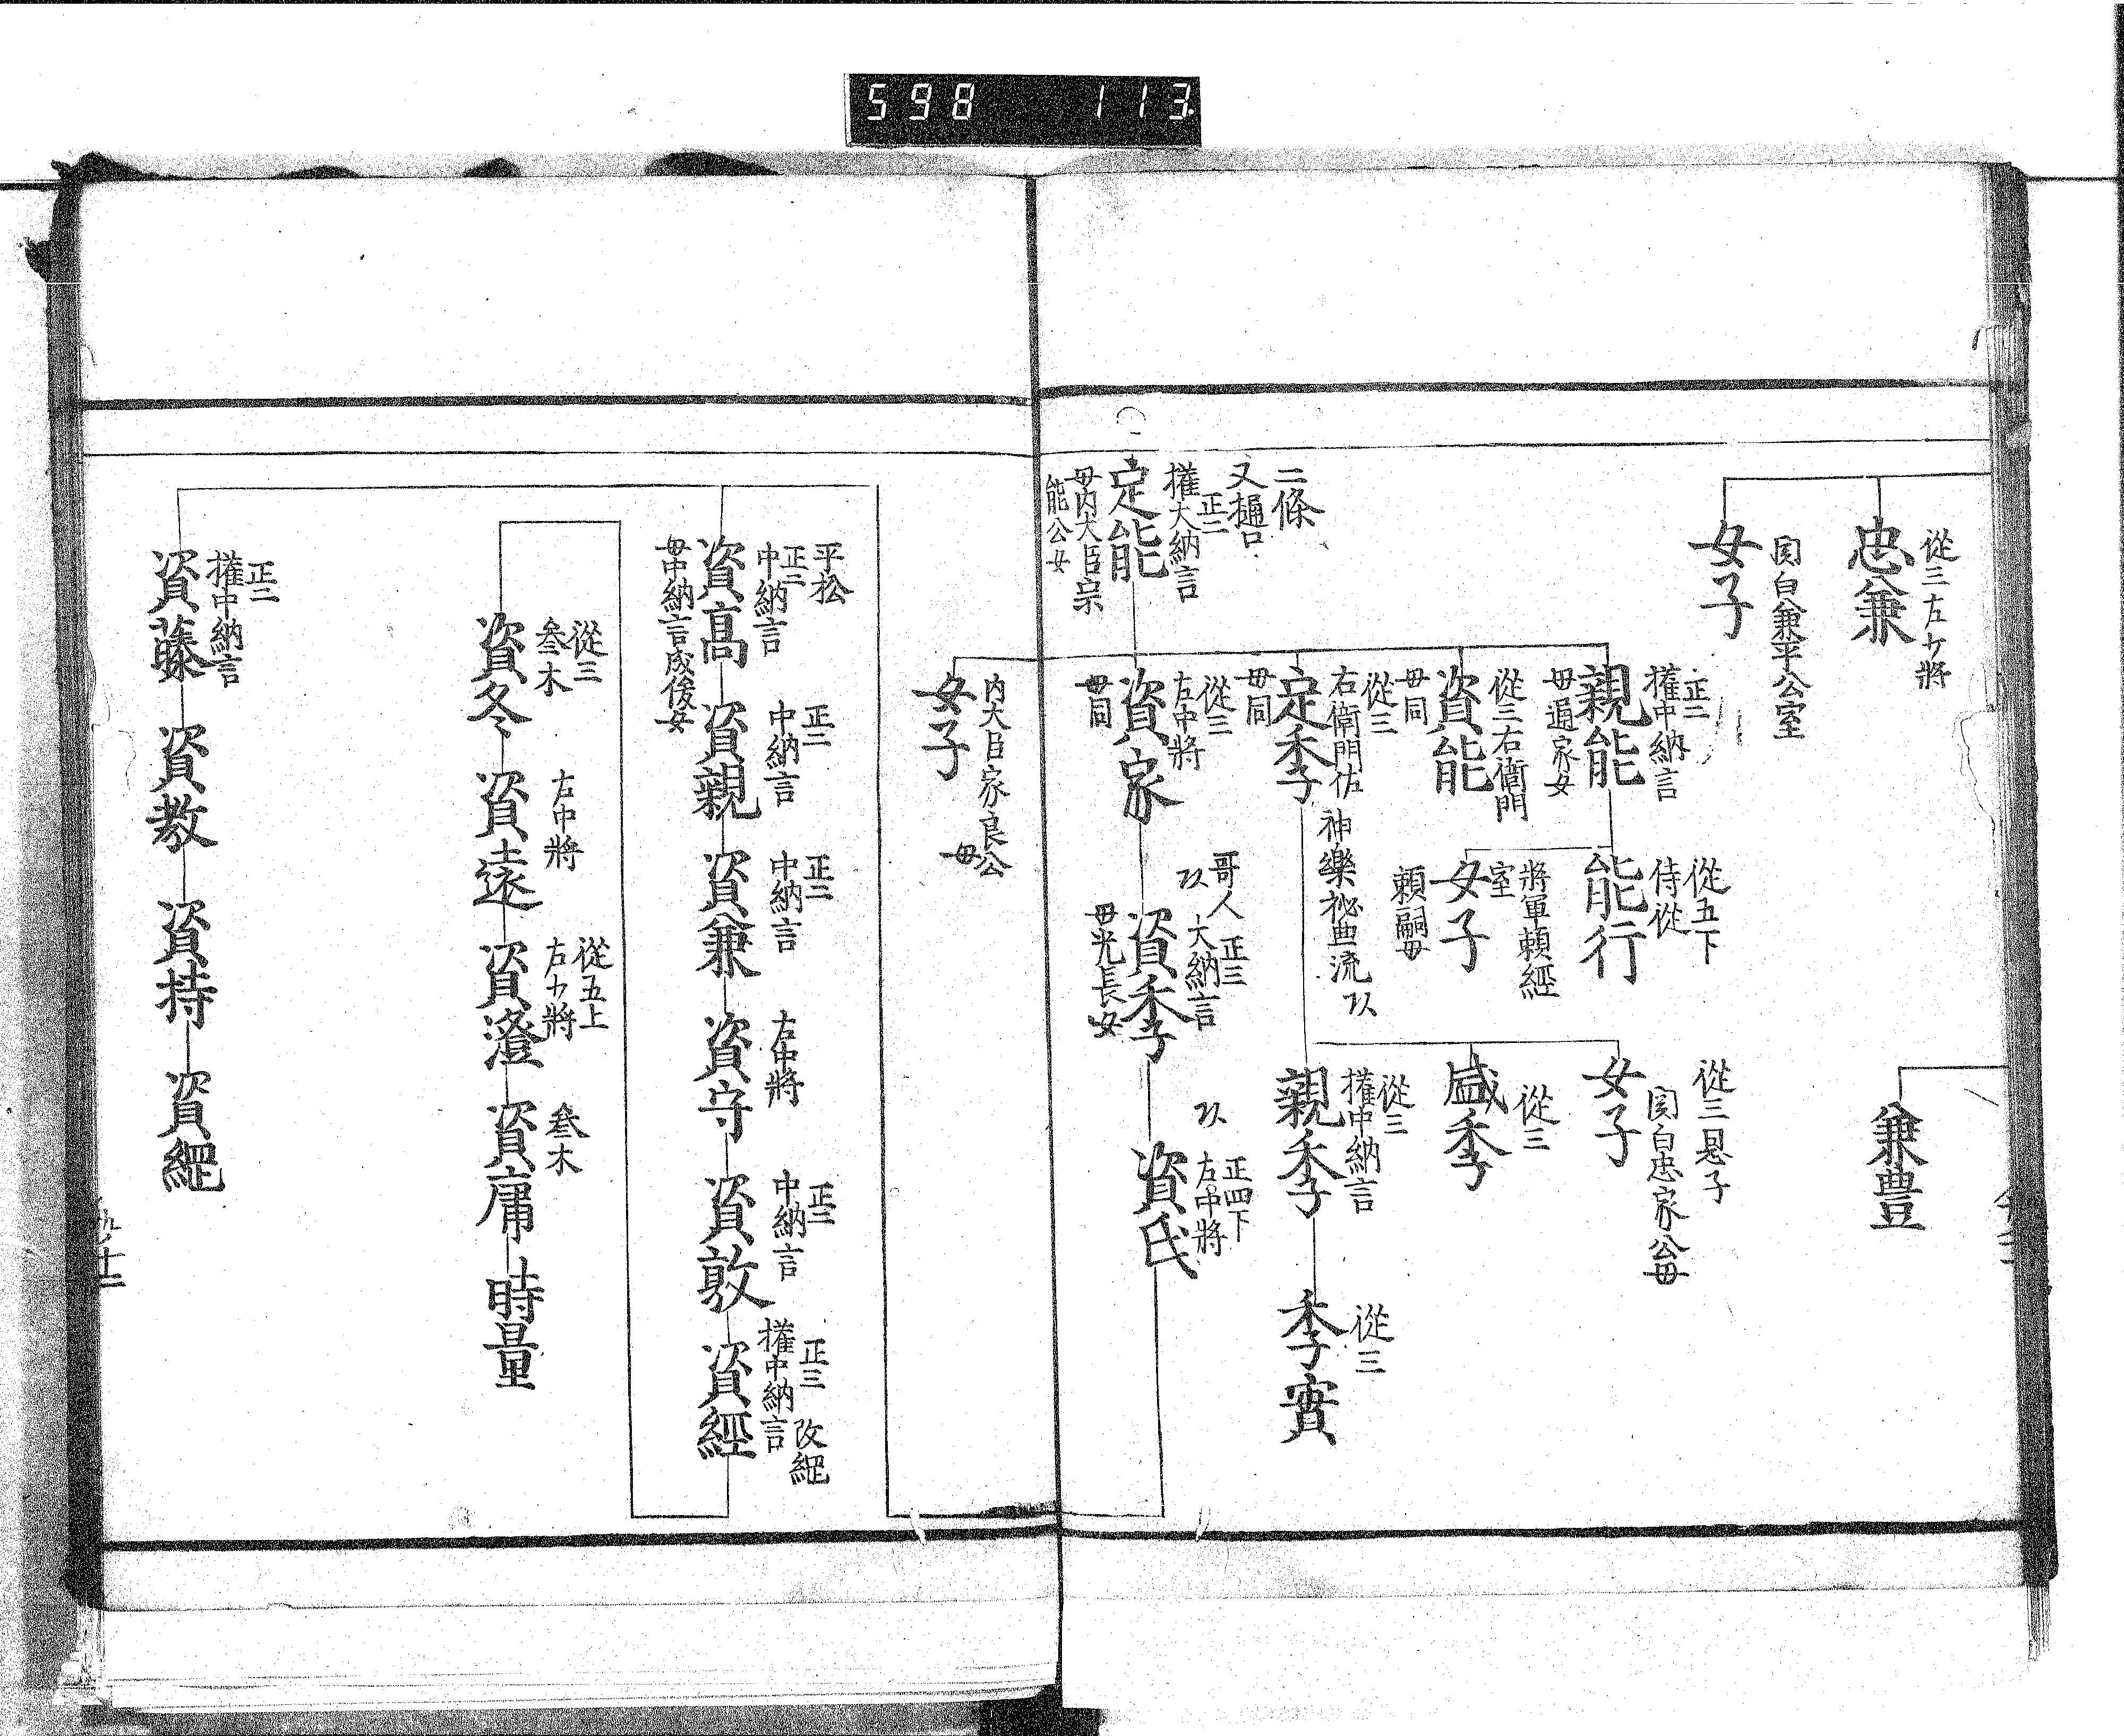 598 113
從三左少將
忠兼
兼豊
関白兼平公室
女子
二條
又樋口
正二
權大納言
定能
母内大臣宗
能公女
正二
權中納言
親能
母通家女
從五下
侍從
能行
將軍頼經
室
女子
頼嗣母
從三右衛門
資能
母同
從三
右衛門佐 神樂祕曲流
定季
母同
從三
關白忠家公母
女子
從三
盛季
從三
權中納言
親季
從三
季實
從三
左中將
資家
母同
哥人
正三
大納言
資季
母光長女
正四下
左中將
資氏
内大臣家良公
母
女子
平松
正二
中納言
資高
母中納言成俊女
正二
中納言
資親
正二
中納言
資兼
右中將
資守
正二
中納言
資敦
正三 改繩
權中納言
資經
從三
叅木
資冬
右中將
資遠
從五上
右少將
資澄
叅木
資庸
時量
正二
權中納言
資藤
資教
資持
資繩